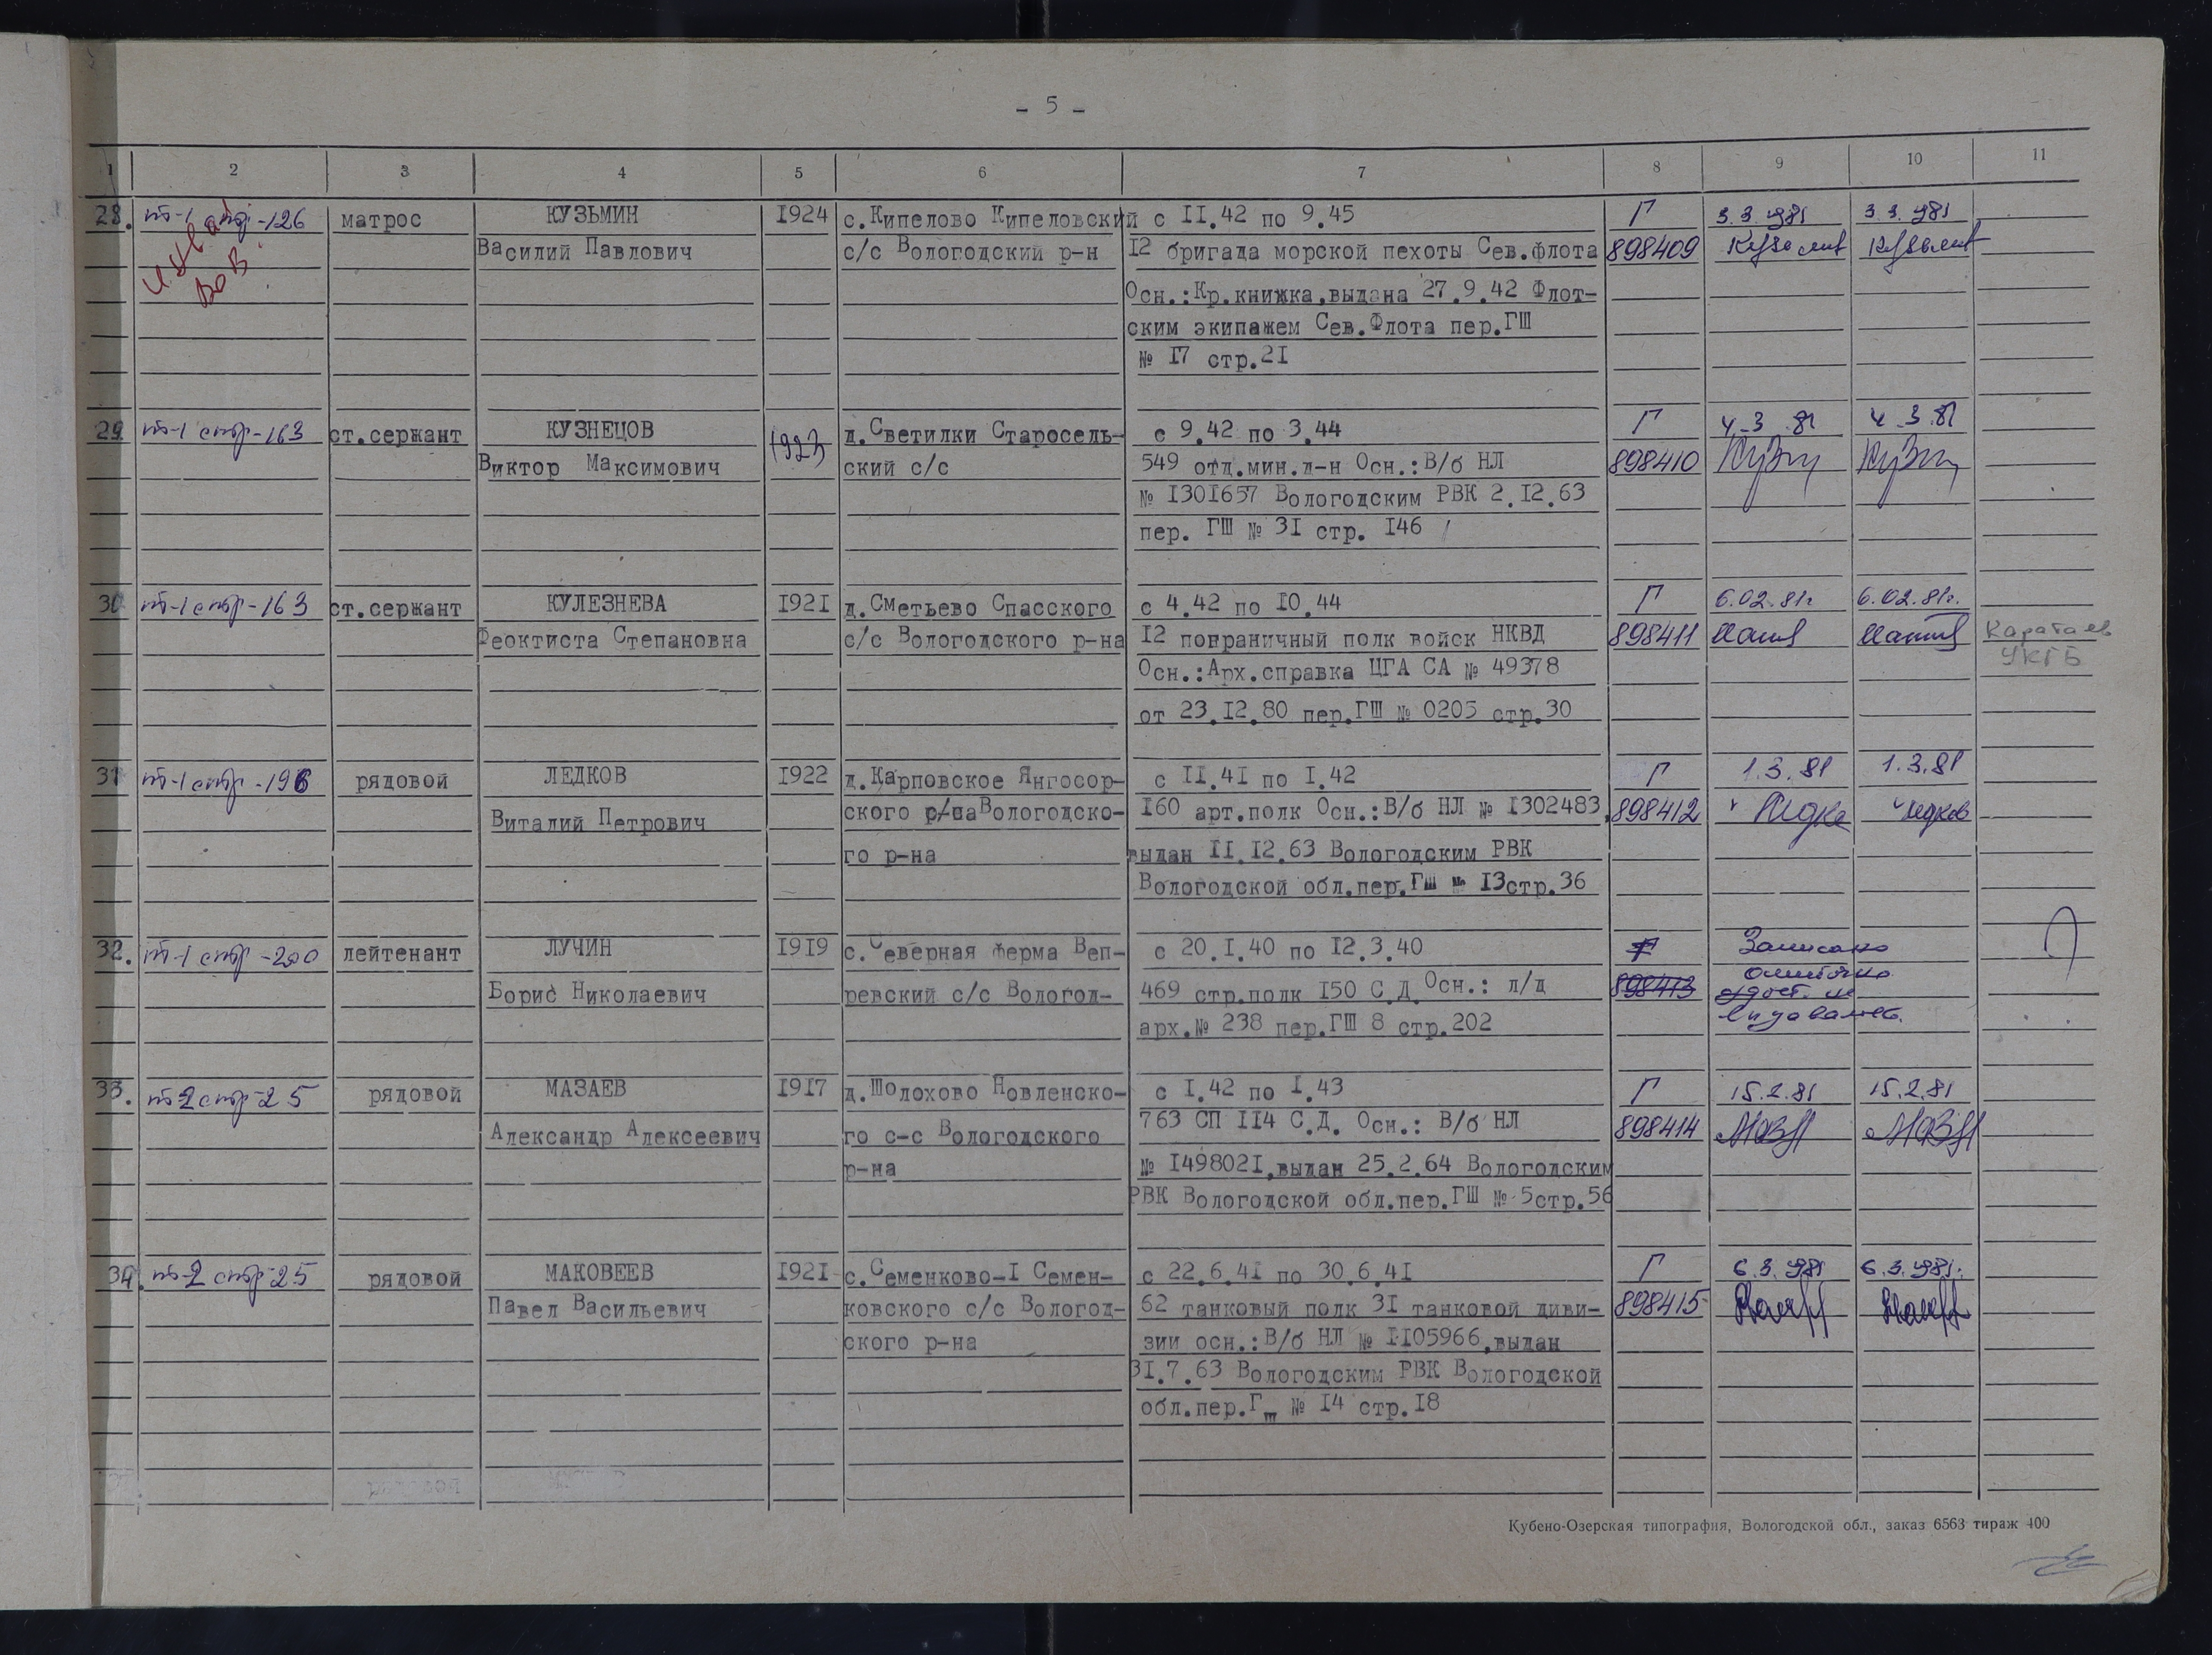 - 5 -
1 2 3 4 5 6 7 8 9 10 11
28. т-1 стр-126 матрос КУЗЬМИН 1924 с.Кипелово Кипеловский с II.42 по 9.45 Г 3.3.1981 3.3.1981
инвалид ВОВ. Василий Павлович с/с Вологодский р-н 12 бригада морской пехоты Сев.флота 898409
Осн.:Кр.книжка,выдана 27.9.42 Флот-
ским экипажем Сев.Флота пер.ГШ
№ I7 стр.2I
29 т-1 стр-163 ст.сержант КУЗНЕЦОВ 1923 д.Светилки Старосель- с 9.42 по 3.44 Г 4.3.81 4.3.81
Виктор Максимович ский с/с 549 отд.мин.д-н Осн.:В/б НЛ 898410
№ I30I657 Вологодским РВК 2.I2.63
пер. ГШ № 3I стр. I46
30 т-1 стр-163 ст.сержант КУЛЕЗНЕВА I92I д.Сметьево Спасского с 4.42 по I0.44 Г 6.02.81г 6.02.81г.
Феоктиста Степановна с/с Вологодского р-на I2 пограничный полк войск НКВД 898411 Каратаев
Осн.:Арх.справка ЦГА СА № 49378 УКГБ
от 23.I2.80 пер.ГШ № 0205 стр.30
31 т-1 стр-196 рядовой ЛЕДКОВ I922 д.Карповское Янгосор- с II.4I по I.42 Г 1.3.81 1.3.81
Виталий Петрович ского с/са Вологодско- I60 арт.полк Осн.:В/б НЛ № I302483, 898412
го р-на выдан II.I2.63 Вологодским РВК
Вологодской обл.пер.ГШ № I3стр.36
32. т-1 стр-200 лейтенант ЛУЧИН I9I9 с.Северная ферма Веп- с 20.I.40 по I2.3.40 Г Записано
Борис Николаевич ревский с/с Вологод- 469 стр.полк I50 С.Д. Осн.: л/д 898413 ошибочно
удост. не
арх.№ 238 пер.ГШ 8 стр.202 выдавалось.
33. т-2 стр-25 рядовой МАЗАЕВ I9I7 д.Шолохово Новленско- с I.42 по I.43 Г 15.2.81 15.2.81
Александр Алексеевич го с-с Вологодского 763 СП II4 С.Д. Осн.: В/б НЛ 898414
р-на № I49802I,выдан 25.2.64 Вологодским
РВК Вологодской обл.пер.ГШ № 5стр.56
34. т-2 стр-25 рядовой МАКОВЕЕВ I92I с.Семенково-I Семен- с 22.6.4I по 30.6.4I Г 6.3.1981 6.3.1981.
Павел Васильевич ковского с/с Вологод- 62 танковый полк 3I танковой диви- 898415
ского р-на зии осн.:В/б НЛ № II05966,выдан
3I.7.63 Вологодским РВК Вологодской
обл.пер.Гш № I4 стр.I8
Кубено-Озерская типография, Вологодской обл., заказ 6563 тираж 400